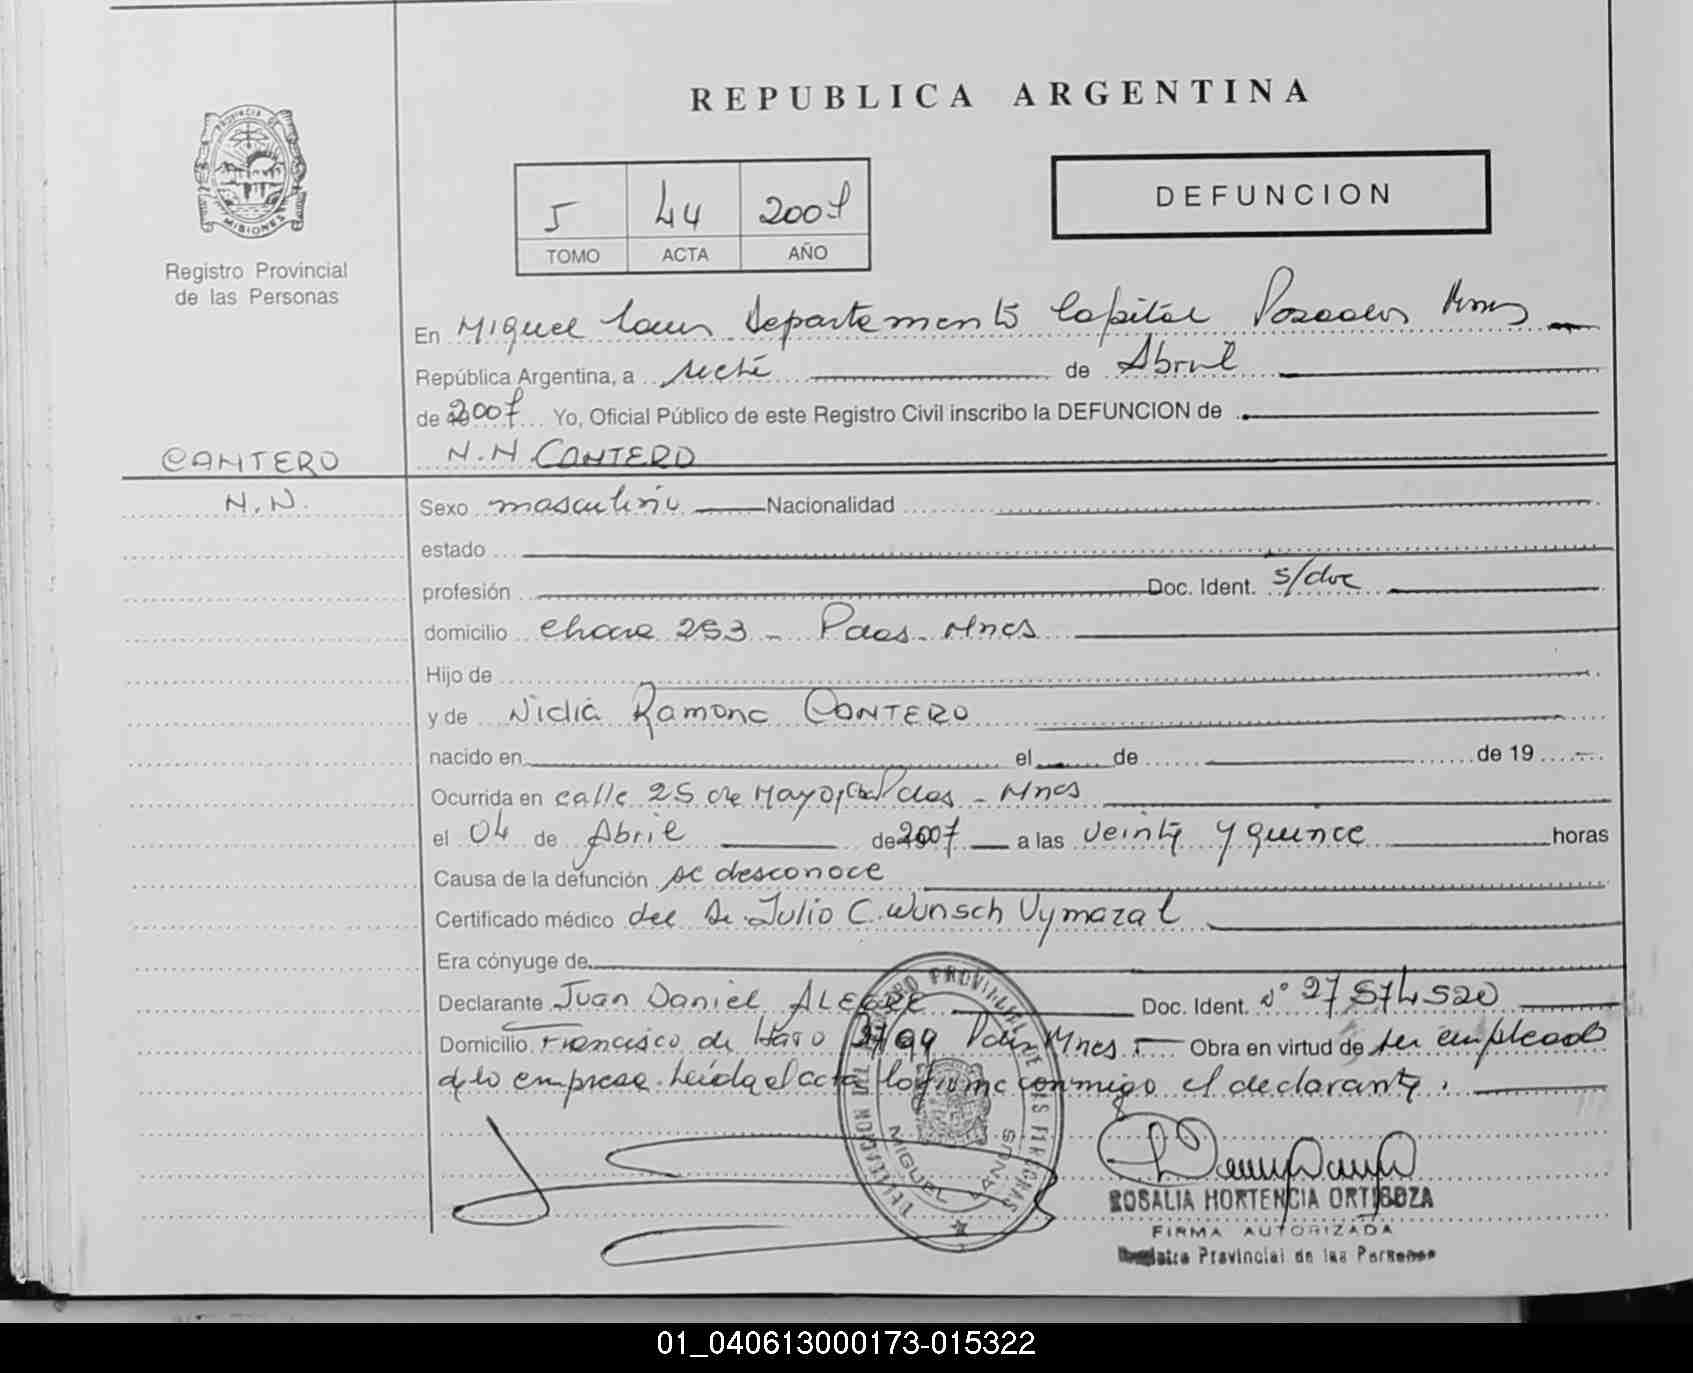 REPUBLICA ARGENTINA
PROVINCIA DE
MISIONES
Registro Provincial
de las Personas
I 44 2007
TOMO ACTA AÑO
DEFUNCION
En Miguel Lanus Departamento Capital Posadas Mnes
República Argentina, a siete de Abril
de 2007 Yo, Oficial Público de este Registro Civil inscribo la DEFUNCION de
CANTERO
N.N CANTERO
N.N.
Sexo masculino Nacionalidad
estado
profesión Doc. Ident. s/doc
domicilio chacra 253 - Pdas - Mnes
Hijo de
y de Nidia Ramona CANTERO
nacido en el de de 19
Ocurrida en calle 25 de Mayo Pdas - Mnes
el 04 de Abril de 2007 a las veinte y quince horas
Causa de la defunción se desconoce
Certificado médico del Dr. Julio C. Wunsch Vymazal
Era cónyuge de
Declarante Juan Daniel ALEGRE Doc. Ident. N° 27 574 520
Domicilio Francisco de Haro Pdas Mnes Obra en virtud de ser empleado
de la empresa. Leida el acta la firma conmigo el declarante.
MIGUEL LANUS
ROSALIA HORTENCIA ORTIGOZA
FIRMA AUTORIZADA
Registro Provincial de las Personas
01_040613000173-015322